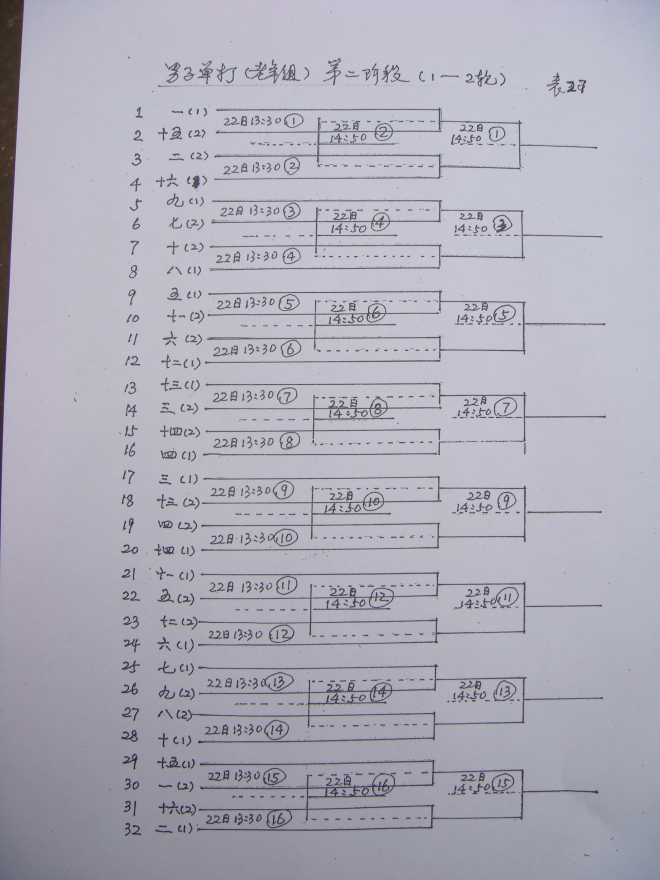 男子单打(老年组) 第二阶段(1—2轮)
1 一(1)
22日13:30 ① 22日 22日
2 十五(2) 14:50 ② 14:50 ①
3 二(2)
22日13:30 ②
4 十六(1)
5 九(1)
22日13:30 ③ 22日 22日
6 七(2) 14:50 ④ 14:50 ③
7 十(2)
22日13:30 ④
8 八(1)
9 五(1)
22日13:30 ⑤ 22日 22日
10 十一(2) 14:50 ⑥ 14:50 ⑤
11 六(2)
22日13:30 ⑥
12 十二(1)
13 十三(1)
22日13:30 ⑦ 22日 22日
14 三(2) 14:50 ⑧ 14:50 ⑦
15 十四(2)
22日13:30 ⑧
16 四(1)
17 三(1)
22日13:30 ⑨ 22日 22日
18 十三(2) 14:50 ⑩ 14:50 ⑨
19 四(2)
22日13:30 ⑩
20 十四(1)
21 十一(1)
22日13:30 ⑪ 22日 22日
22 五(2) 14:50 ⑫ 14:50 ⑪
23 十二(2)
22日13:30 ⑫
24 六(1)
25 七(1)
22日13:30 ⑬ 22日 22日
26 九(2) 14:50 ⑭ 14:50 ⑬
27 八(2)
22日13:30 ⑭
28 十(1)
29 十五(1)
22日13:30 ⑮ 22日 22日
30 一(2) 14:50 ⑯ 14:50 ⑮
31 十六(2)
22日13:30 ⑯
32 二(1)